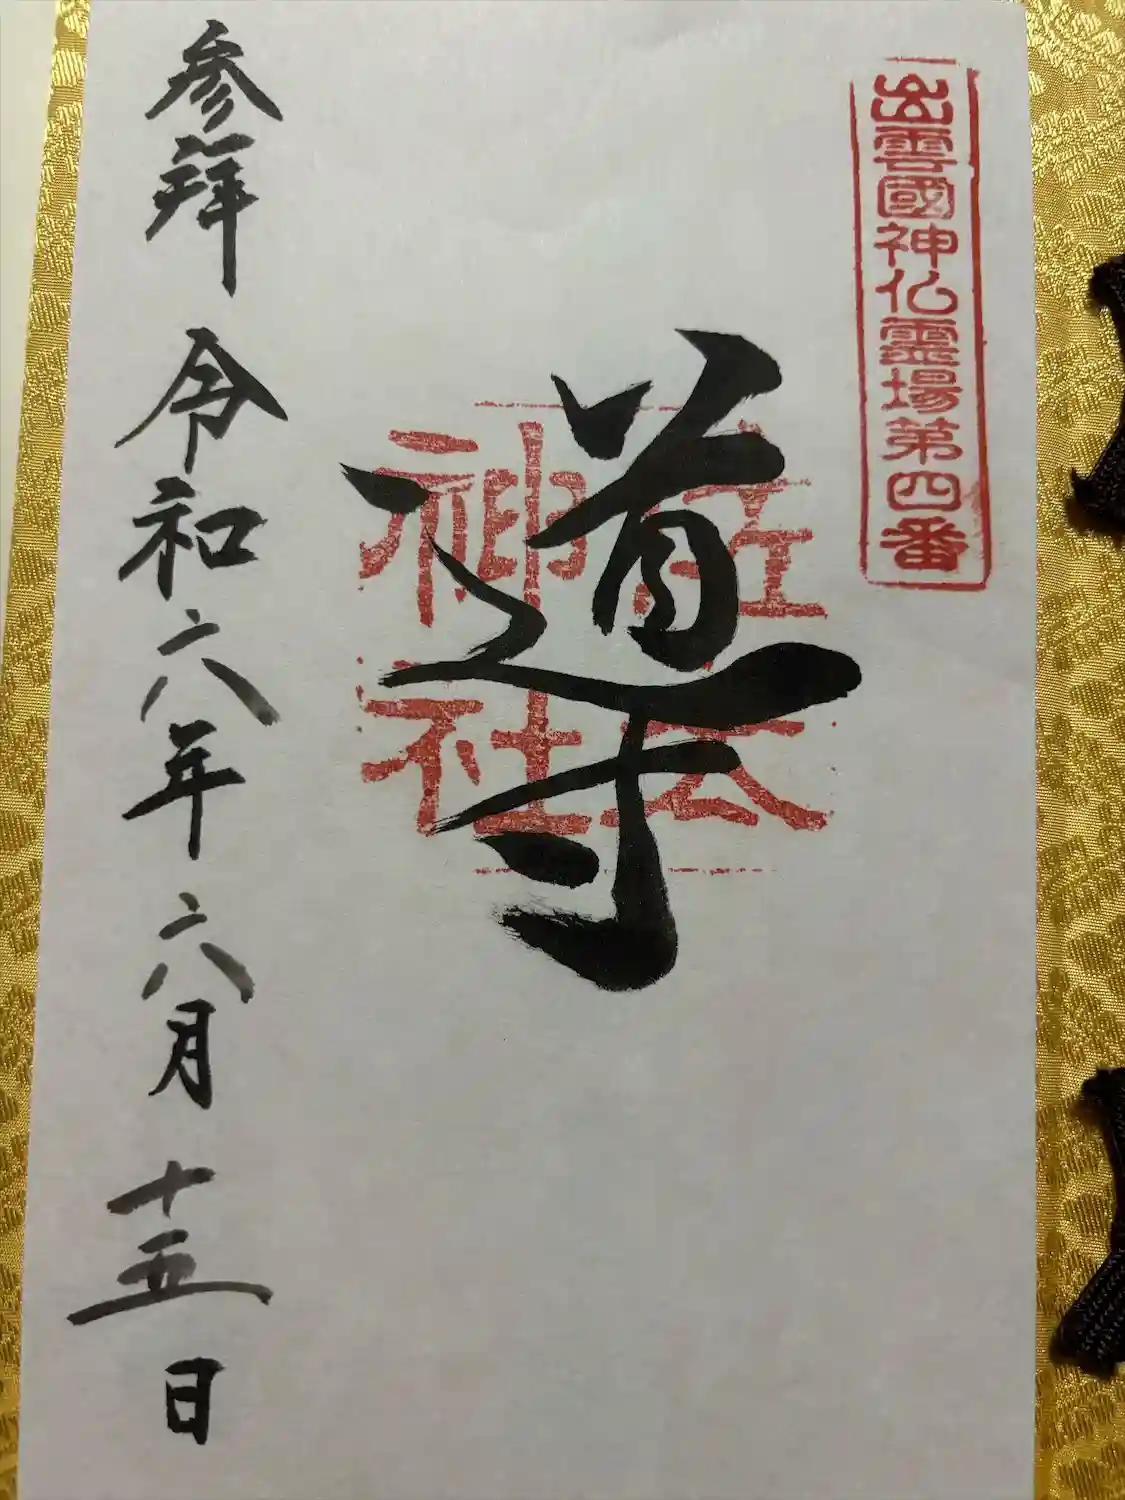 出雲國神仏霊場第四番
導
佐太
神社
参拜 令和六年六月十五日